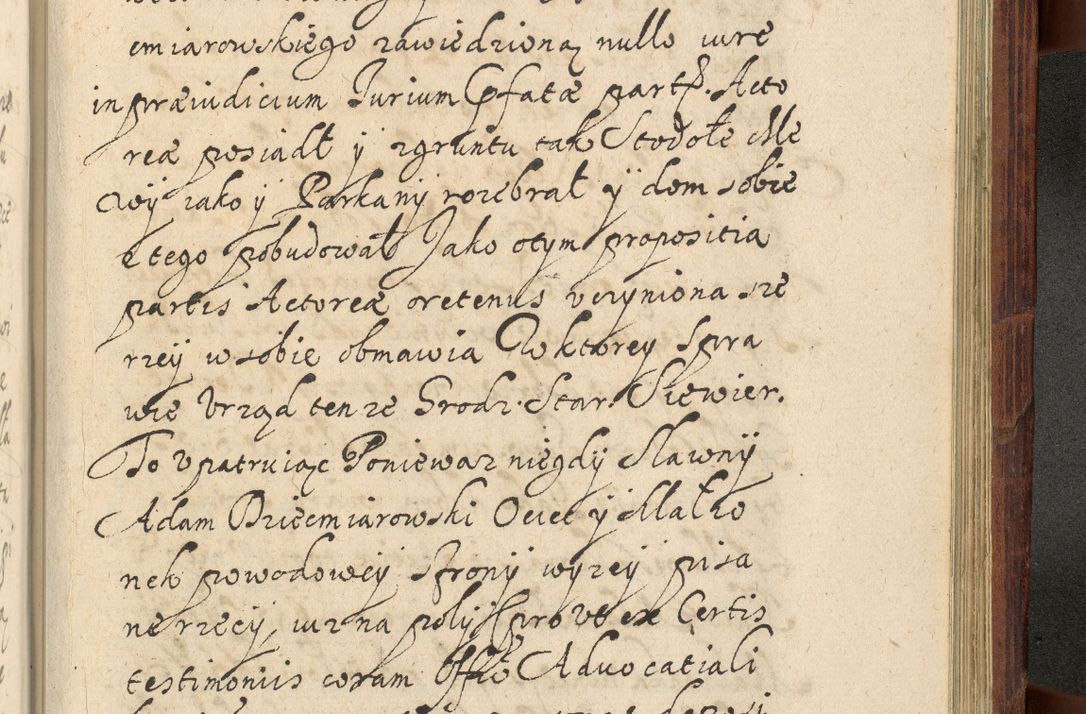 emiarowskiego zawiedzioną nullo iure
in præiudicium Jurium Pfatæ part. Acto
reæ posiadł y zgruntu tak Stodołe Me
wy iako y Parkany rozebrał y dom sobie
z tego pobudował Jako otym propositia
partis Actoreæ oretenus vczyniona sze
rzey w sobie obmawia W ktorey Spra
wie Vrząd tenze Grodz. Star. Siewier.
To vpatruiąc Poniewaz niegdy Sławny
Adam Dziecmiarowski Ociec y Małzo
nek powodowey strony wyzey pisa
ne rzeczy, iuz na poły prout ex Certis
testimoniis coram Offio Aduocatiali